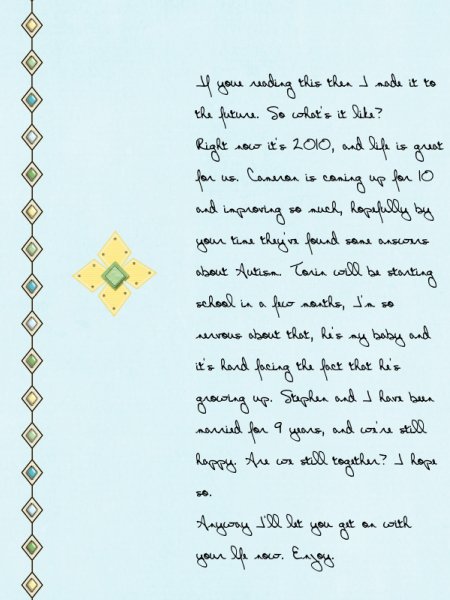 If youre reading this then I made it to
the future. So what's it like?
Right now it's 2010, and life is great
for us. Cameron is coming up for 10
and improving so much, hopefully by
your time they've found some answers
about Autism. Torin will be starting
school in a few months, I'm so
nervous about that, he's my baby and
it's hard facing the fact that he's
growing up. Stephen and I have been
married for 9 years, and we're still
happy. Are we still together? I hope
so.
Anyway I'll let you get on with
your life now. Enjoy.